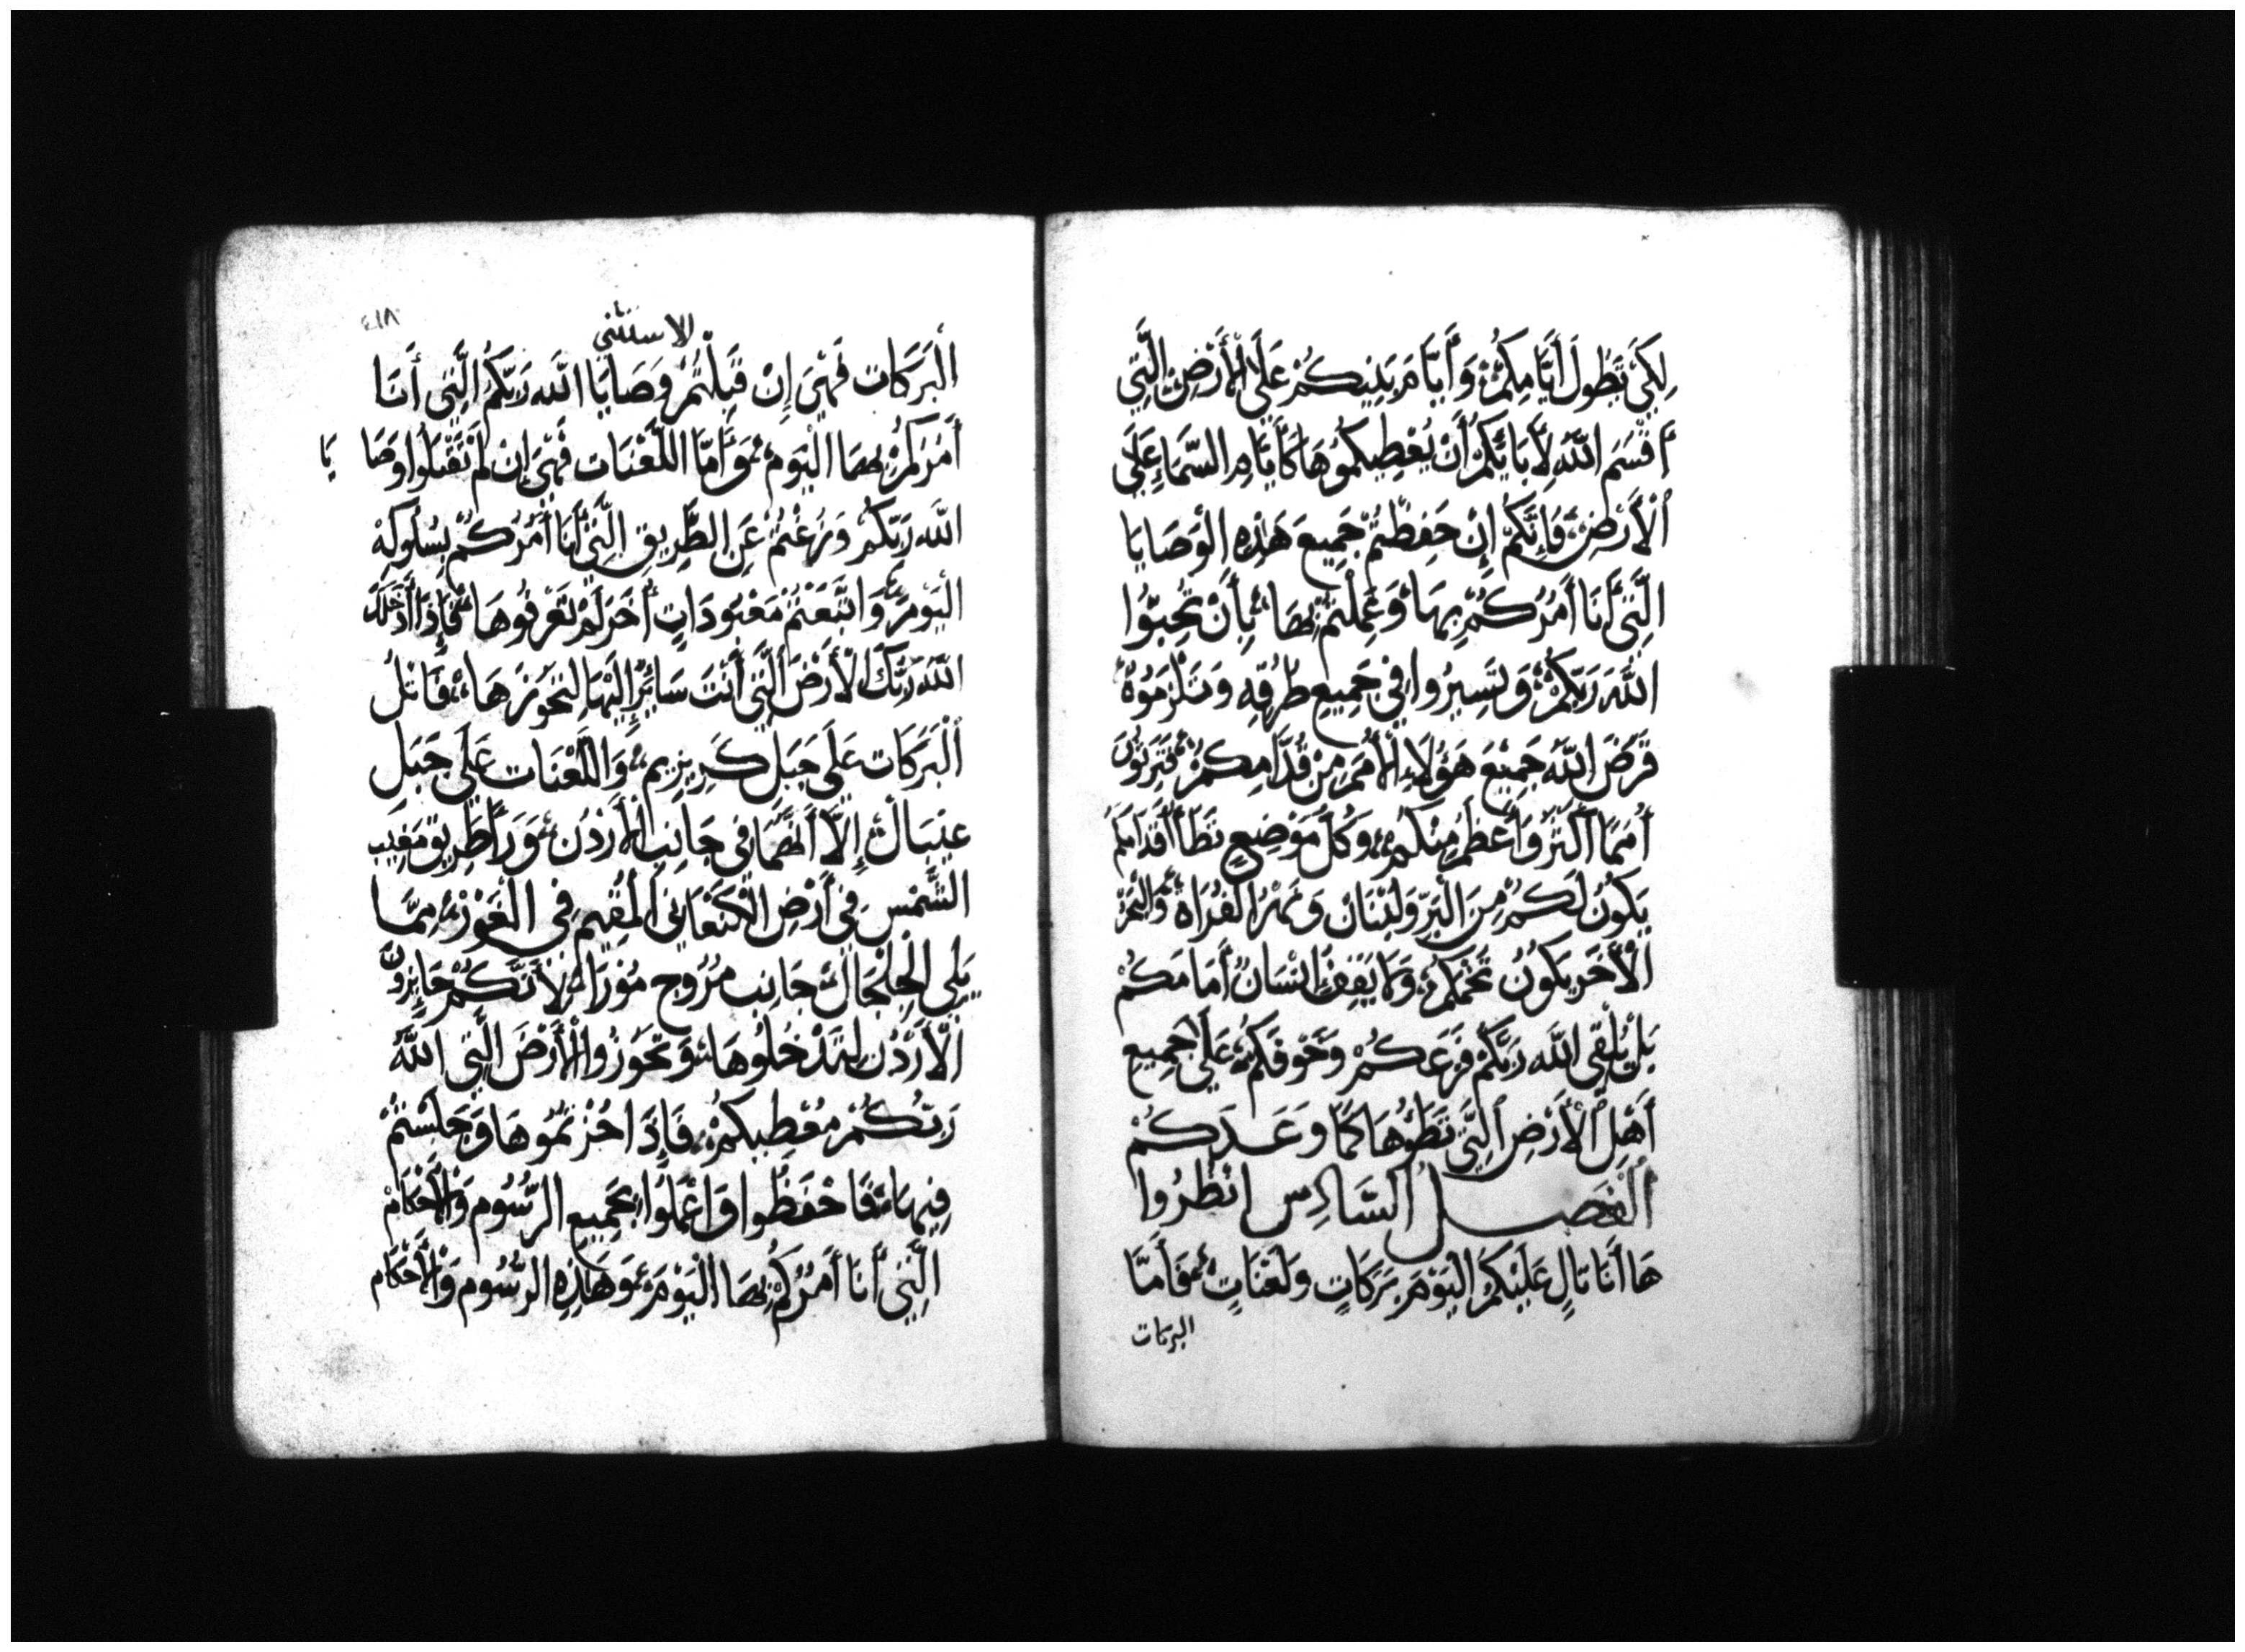 لِكَيْ تَطُولَ أَيَّامِكُمْ وَأَيَّامَ بَنِيكُمْ عَلَى الْأَرْضِ الَّتِي
أَقْسَمَ اللَّهُ لِأَبَائِكُمْ أَنْ يُعْطِيكُمُوهَا كَأَيَّامِ السَّمَاءِ عَلَى
الْأَرْضِ فَإِنَّكُمْ إِنْ حَفِظْتُمْ جَمِيعَ هَذِهِ الْوَصَايَا
الَّتِي أَنَا أَمُرُكُمْ بِهَا وَعَمِلْتُمْ بِهَا بِأَنْ تُحِبُّوا
اللَّهَ رَبَّكُمْ وَتَسِيرُوا فِي جَمِيعِ طُرُقِهِ وَتَلْزَمُوهُ
قَرَضَ اللَّهُ جَمِيعَ هَؤُلَاءِ الْأُمَمِ مِنْ قُدَّامِكُمْ فَتَرِثُونَ
أُمَمًا أَكْثَرَ وَأَعْظَمَ مِنْكُمْ وَكُلُّ مَوْضِعٍ تَطَأُ أَقْدَامَكُمْ
يَكُونُ لَكُمْ مِنَ الْبَرِّ وَلُبْنَانَ وَنَهْرُ الْفُرَاةِ وَالْبَحْرُ
الْأَخَر يَكُونُ تُخْمَكُمْ وَلَا يَقِفُ إِنْسَانٌ أَمَامَكُمْ
بَلْ يُلْقِي اللَّه رَبَّكُمْ فَزَعَكُمْ وَخَوْفَكُمْ عَلَى جَمِيعِ
أَهْلِ الْأَرْضِ الَّتِي تَطَؤُهَا كَمَا وَعَدَكُمْ
الْفَصل السَّادِس انْظُرُوا
هَا أَنَا تَالٍ عَلَيْكُمُ الْيَوْمَ بَرَكَاتٍ وَلَعْنَاتٍ فَأَمَّا
البركات
الاستثني
الْبَرَكَات فَهْيَ إِنْ قَبِلْتُمْ وَصَايَا اللَّه رَبَّكُمُ الَّتِي أَنَا
أَمُرُكُمْ بِهَا الْيَوْمَ وَأَمَّا اللَّعْنَات فَهْيَ إِنْ لَمْ تَقْبَلُوا وَصَايَا
اللَّه رَبَّكُمْ وَزُغْتُمْ عَنِ الطَّرِيقِ الَّتِي أَنَا أَمُرُكُمْ بِسُلُوكِهْ
الْيَوْمَ وَاتَّبَعْتُمْ مَعْبُودَاتٍ أُخَرَ لَمْ تَعْرِفُوهَا فَإِذَا أَدْخَلَكَ
اللَّه رَبُّكَ الْأَرْضَ الَّتِي أَنْتَ سَائِرٌ إِلَيْهَا لِتَحُوزَهَا فَاتْلُ
الْبَرَكَات عَلَى جَبَلِ كَرِيزِيم وَاللَّعْنَات عَلَى جَبَل
عَيْبَال إِلَّا أَنَّهُمَا فِي جَانِبِ الْأَرْدُن وَرَا طَرِيق مَغِيب
الشَّمْسِ فِي أَرْضِ الْكَنْعَانِي الْمُقِيم فِي الْغَوْرِ مِمَّا
يَلِي الْجِلْجَالَ جَانِب مُرُوج مُورَا لِأَنَّكُمْ جَايِزُونَ
الْأَرْدُن لِتَدْخُلُوهَا وَتَحُوزُوا الْأَرْضَ الَّتِي اللَّهُ
رَبُّكُمْ مُعْطِيكُمْ فَإِذَا حُزْتُمُوهَا وَجَلَسْتُمْ
فِيهَا فَاحْفَظُوا وَاعْمَلُوا بِجَمِيعِ الرُّسُوم وَالْأَحْكَامْ
الَّتِي أَنَا أَمُرُكُمْ بِهَا الْيَوْمَ وَهَاذِهِ الرُّسُوم وَالْأَحْكَام